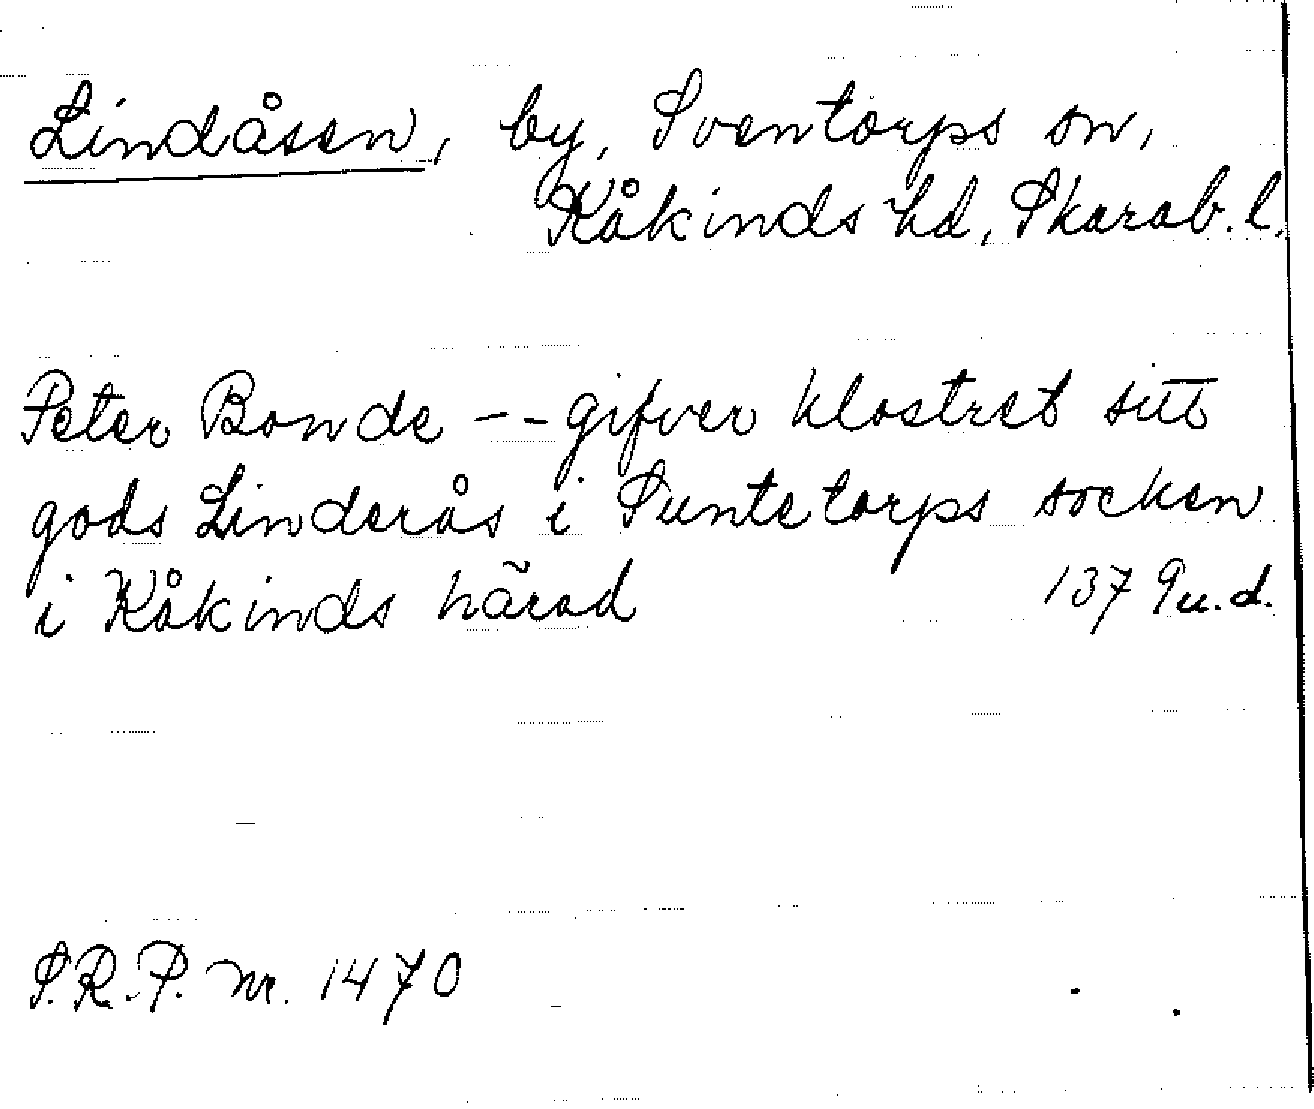 Lindåsen, by, Sventorps sn,
Kåkinds hd, Skarab. l.
Peter Bonde -- gifver klostret sitt
gods Linderås i Suntetorps socken
i Kåkinds härad 1379 u.d.
S.R.P. nr. 1470